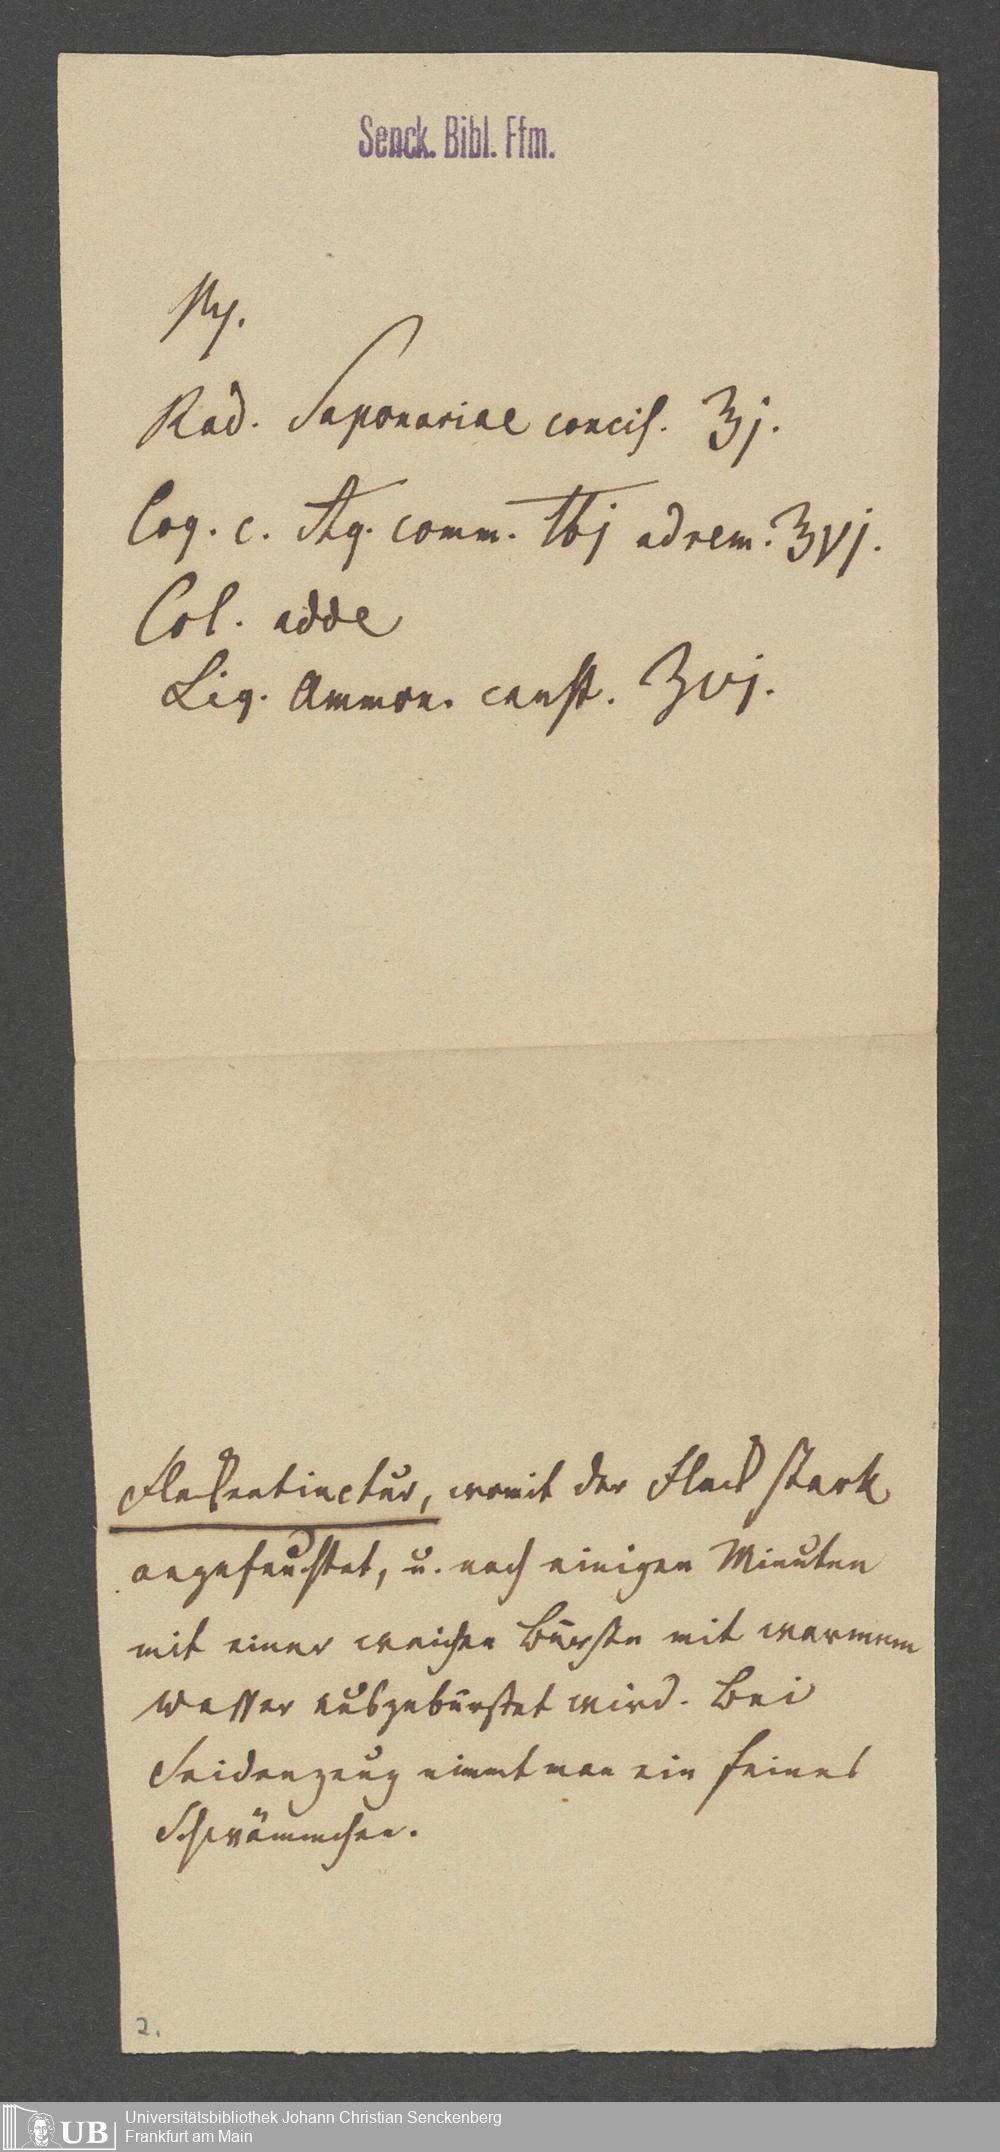 Senck. Bibl. Ffm.
Rp.
Rad. Saponariae concis. ℥j.
Coq. c. Aq. comm. ℔j ad rem. ℥vj.
Col. adde
Liq. Ammon. caust. ʒvj.
Fleckentinctur, womit der Fleck stark
angefeuchtet, u. nach einigen Minuten
mit einer weichen Bürste mit warmem
Wasser ausgebürstet wird. Bei
Seidenzeug nimmt man ein feines
Schwämmchen.
2.
UB Universitätsbibliothek Johann Christian Senckenberg
Frankfurt am Main